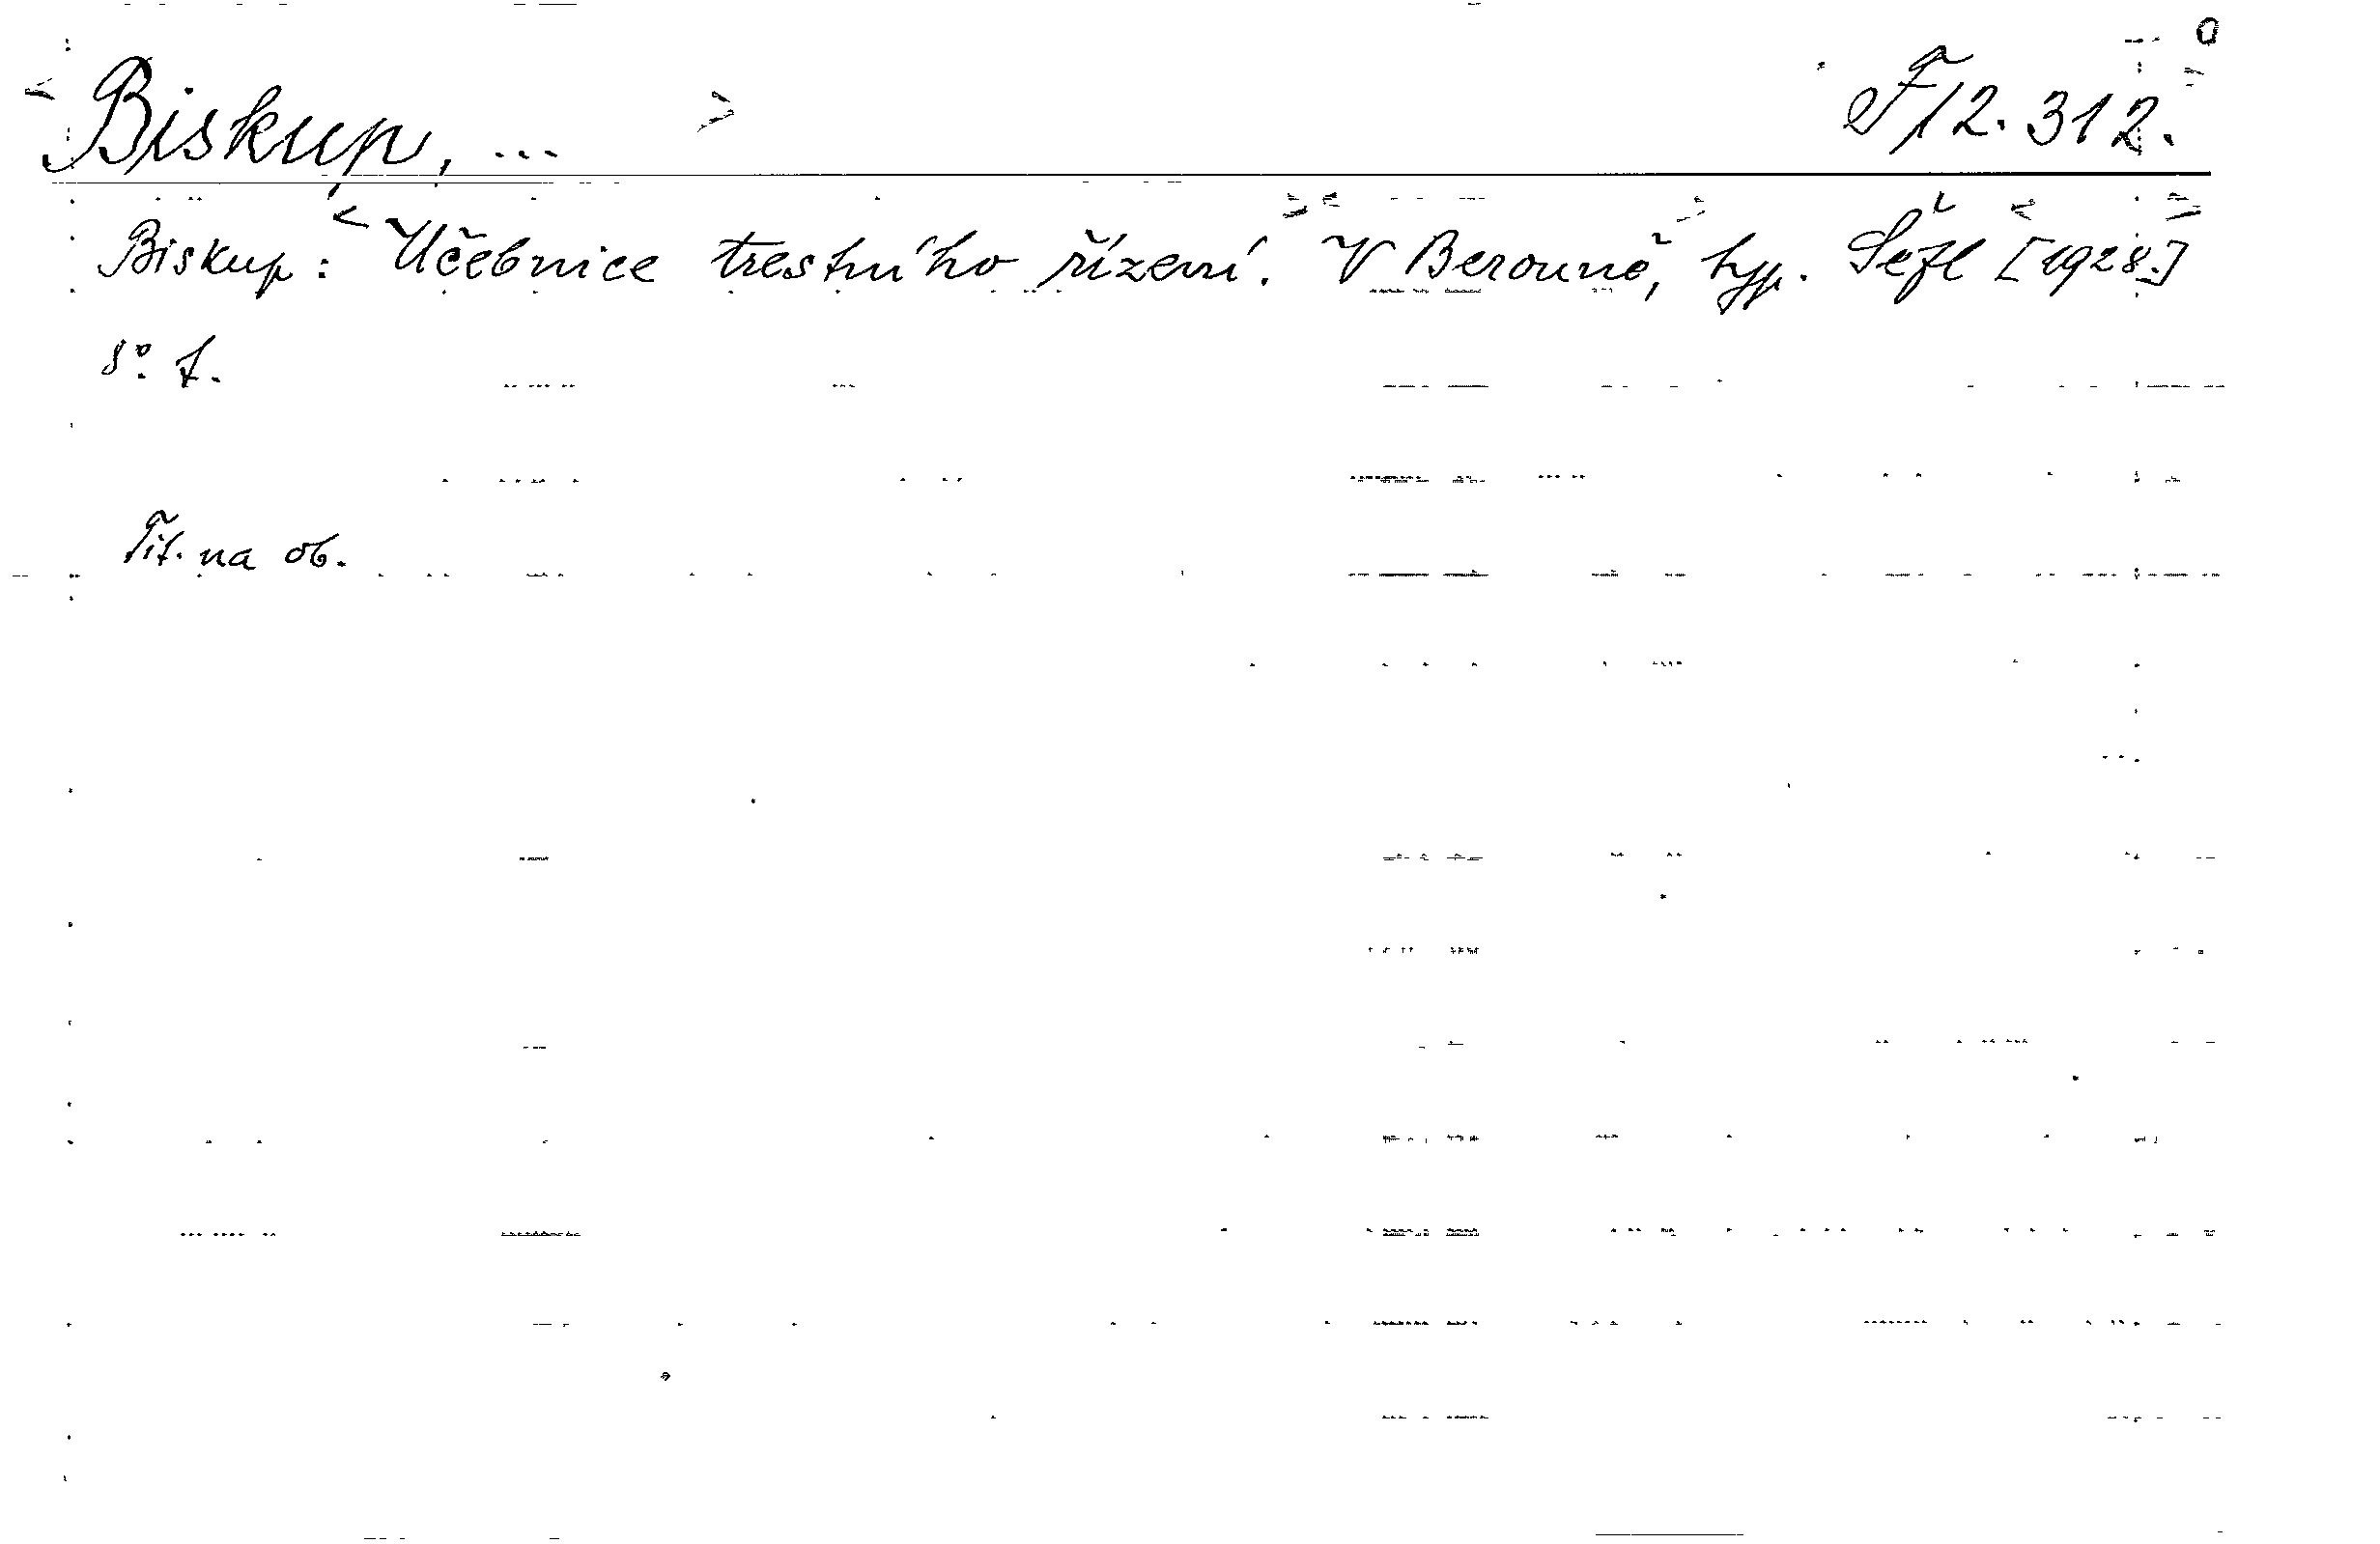 Biskup, ... F 12.312.
Biskup: Učebnice trestního řízení. V Berouně, typ. Šefl [1928.]
8°. f.
Tit. na ob.